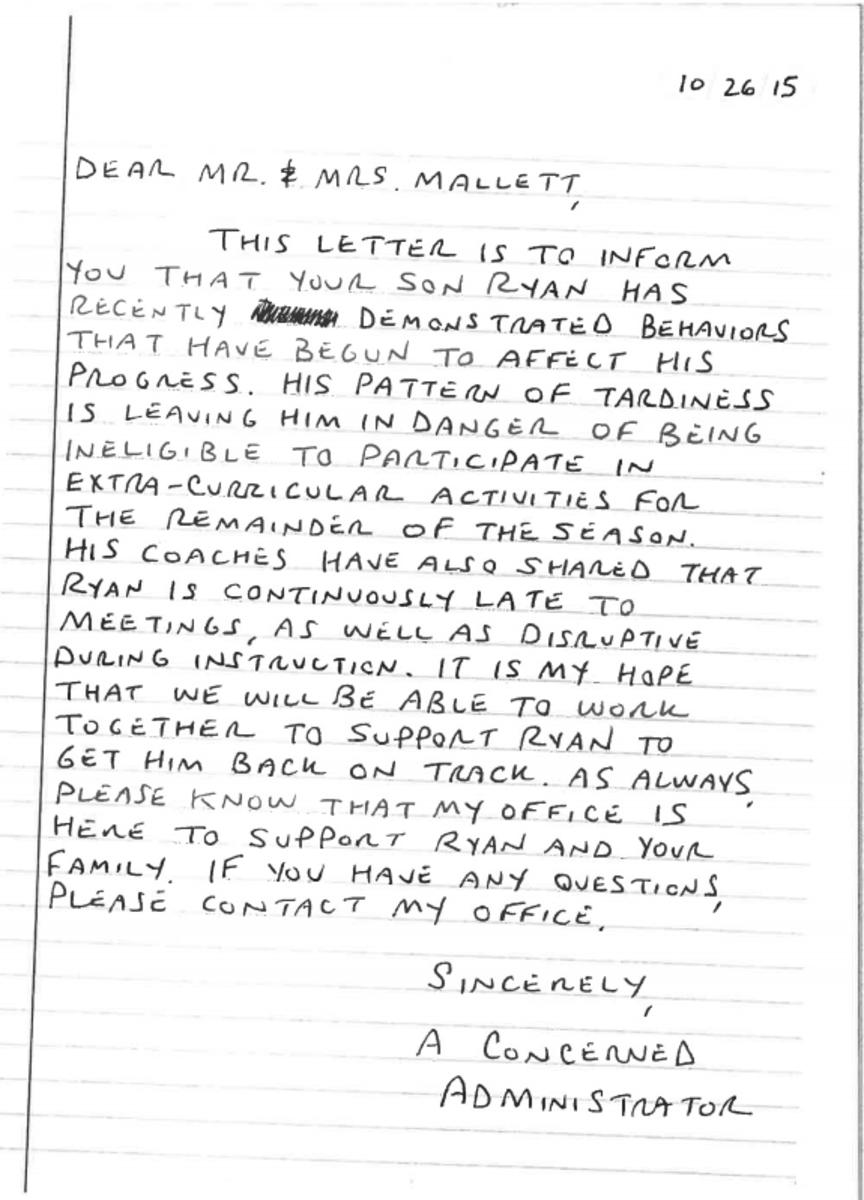 10 26 15
DEAR MR. & MRS. MALLETT,
THIS LETTER IS TO INFORM
YOU THAT YOUR SON RYAN HAS
RECENTLY DEMONSTRATED BEHAVIORS
THAT HAVE BEGUN TO AFFECT HIS
PROGRESS. HIS PATTERN OF TARDINESS
IS LEAVING HIM IN DANGER OF BEING
INELIGIBLE TO PARTICIPATE IN
EXTRA-CURRICULAR ACTIVITIES FOR
THE REMAINDER OF THE SEASON.
HIS COACHES HAVE ALSO SHARED THAT
RYAN IS CONTINUOUSLY LATE TO
MEETINGS, AS WELL AS DISRUPTIVE
DURING INSTRUCTION. IT IS MY HOPE
THAT WE WILL BE ABLE TO WORK
TOGETHER TO SUPPORT RYAN TO
GET HIM BACK ON TRACK. AS ALWAYS,
PLEASE KNOW THAT MY OFFICE IS
HERE TO SUPPORT RYAN AND YOUR
FAMILY. IF YOU HAVE ANY QUESTIONS,
PLEASE CONTACT MY OFFICE.
SINCERELY,
A CONCERNED
ADMINISTRATOR